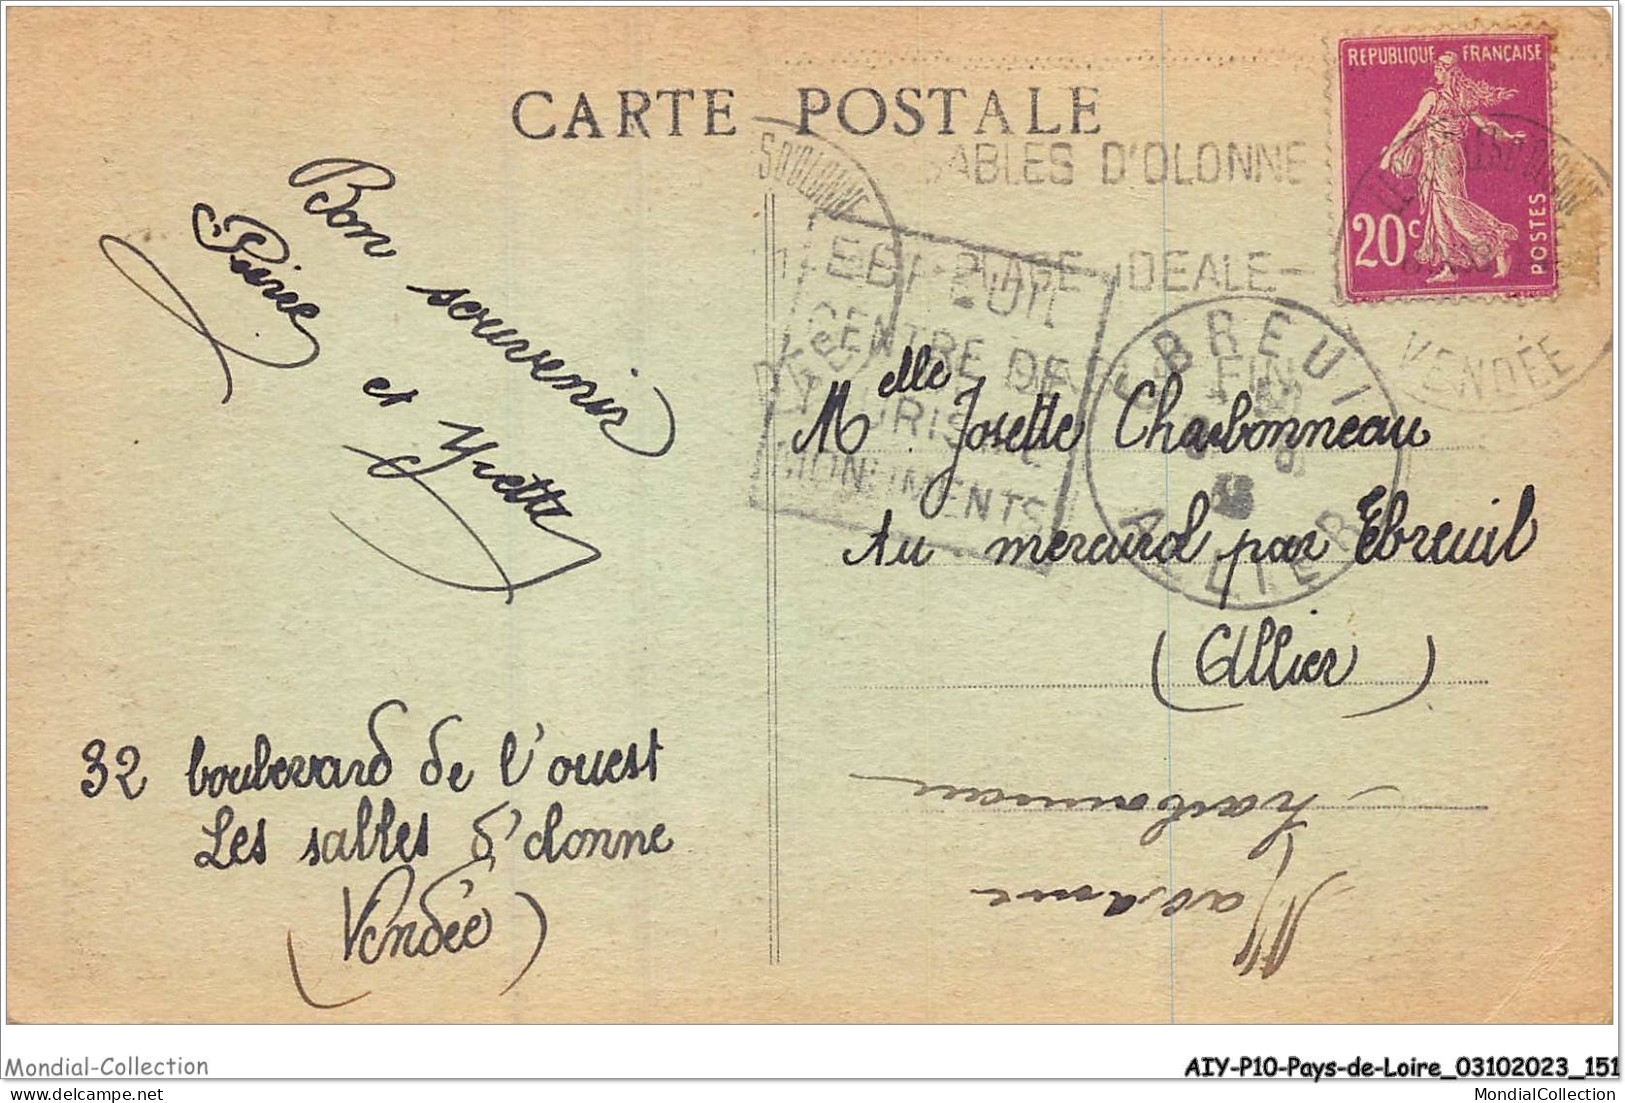 CARTE POSTALE
REPUBLIQUE FRANÇAISE
20c
POSTES
SABLES D'OLONNE
PLAGE IDEALE
VENDÉE
EBREUIL
CENTRE DE
TOURISME
MONUMENTS
EBREUIL
ALLIER
Bon souvenir
Pierre
et Yvette
Melle Josette Charbonneau
Au mercurol par Ebreuil
(Allier)
32 boulevard de l'ouest
Les sables d'olonne
(Vendée)
Madame
Charbonneau
Mondial-Collection
AIY-P10-Pays-de-Loire_03102023_151
delcampe.net
MondialCollection